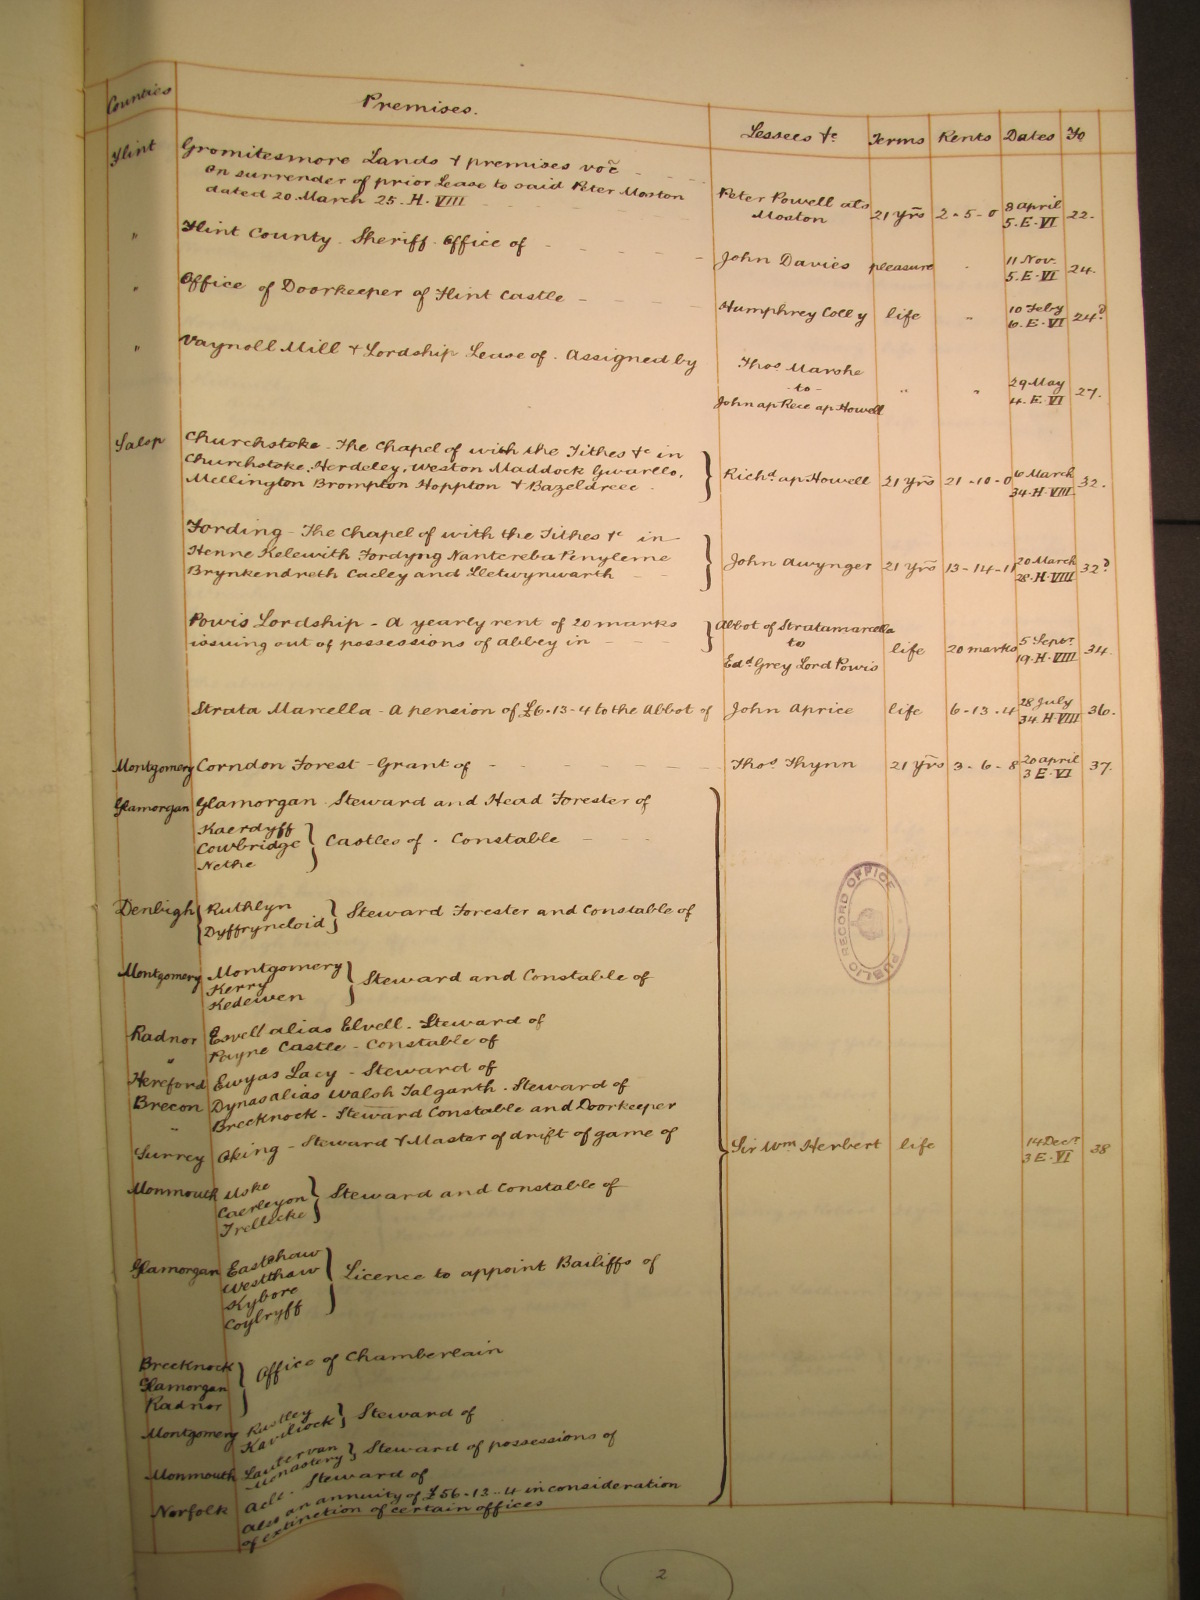 Counties Premises. Lessees &c Terms Rents Dates Fo
Flint Gromitesmore Lands & premises voc̃
on surrender of prior Lease to said Peter Moston
dated 20 March 25. H. VIII
Peter Powell als
Moston 21 yrs 2-5-0 8 April
5. E. VI 22.
" Flint County. Sheriff. Office of
John Davies pleasure . 11 Nov.
5. E. VI 24.
" Office of Doorkeeper of Flint Castle
Humphrey Colly life " 10 Feby
6. E. VI 24d
" Vaynoll Mill & Lordship Lease of. Assigned by
Thos Marshe
- to -
John ap Rece ap Howell " " 29 May
4. E. VI 27.
Salop Churchstoke - The Chapel of with the Tithes &c in
Churchstoke, Herdeley, Weston Maddock Gwarllo,
Mellington Brompton Hoppton & Bazeldreec
Richd ap Howell 21 yrs 21-10-0 6 March
34. H. VIII 32.
Fording - The Chapel of with the Tithes &c in
Henne Kelewith Fordyng Nantereba Penylene
Brynkendreth Caeley and Lletwynwarth
John Awynger 21 yrs 13-14-11 20 March
28. H. VIII 32d
Powis Lordship - A yearly rent of 20 marks
issuing out of possessions of abbey in
Abbot of Stratamarcella
to
Edd Grey Lord Powis life 20 marks 5 Septr
19. H. VIII 34.
Strata Marcella - A pension of £6-13-4 to the Abbot of John Aprice life 6-13-4 28 July
34. H. VIII 36.
Montgomery Corndon Forest - Grant of Thos Thynn 21 yrs 3-6-8 20 April
3 E. VI 37.
Glamorgan Glamorgan. Steward and Head Forester of
Kaerdyff
Cowbridge
Nethe
Castles of. Constable
Denbigh Ruthlyn
Dyffryncloid
Steward Forester and Constable of
Montgomery Montgomery
Kerry
Kedewen
Steward and Constable of
Radnor Esvell alias Elvell. Steward of
" Payne Castle - Constable of
Hereford Ewyas Lacy - Steward of
Brecon Dynas alias Walsh Talgarth. Steward of
" Brecknock - Steward Constable and Doorkeeper
Surrey Oking - Steward & Master of drift of game of
Sir Wm Herbert life 14 Decr
3 E. VI 38
Monmouth Uske
Caerleyon
Trellecke
Steward and Constable of
Glamorgan Eastshaw
Westthaw
Kybore
Coylryff
Licence to appoint Bailiffs of
Brecknock
Glamorgan
Radnor
Office of Chamberlain
Montgomery Rustley
Kaviliock
Steward of
Monmouth Lantervan
Monastery
Steward of possessions of
Norfolk Acle. Steward of
Also an annuity of £56-13-4 in consideration
of extinction of certain offices
PUBLIC RECORD OFFICE
2